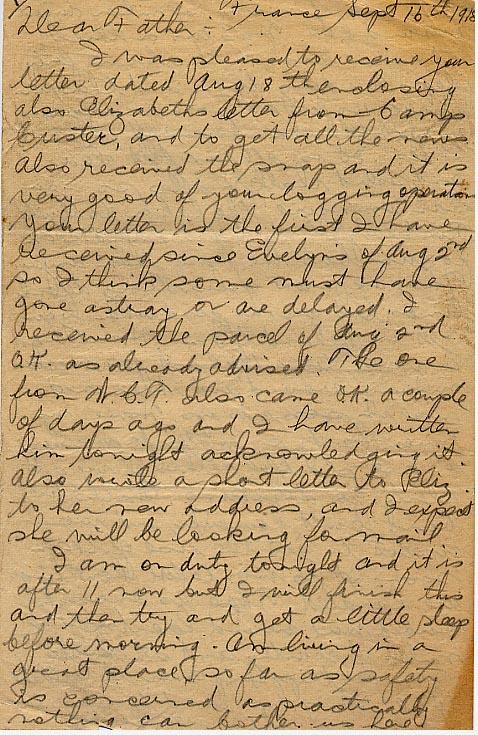 France Sept 16th 1918
Dear Father:
I was pleased to receive your
letter dated Aug 18th enclosing
also Elizabeths letter from Camp
and to get all the news
also received the snap and it is
very good of your logging operation
Your letter is the first I have
received since Evelyn's of Aug 2nd
so I think some must have
gone astray or are delayed. I
received the parcel of Aug 2nd
O.K. as already advised. The one
from A.C.T. also came O.K. a couple
of days ago and I have written
him tonight acknowledging it.
also wrote a short letter to Eliz
to her new address, and I expect
she will be looking for mail
I am on duty tonight and it is
after 11 now but I will finish this
and then try and get a little sleep
before morning. Am living in a
great place so far as safety
is concerned as practically
nothing can bother us here